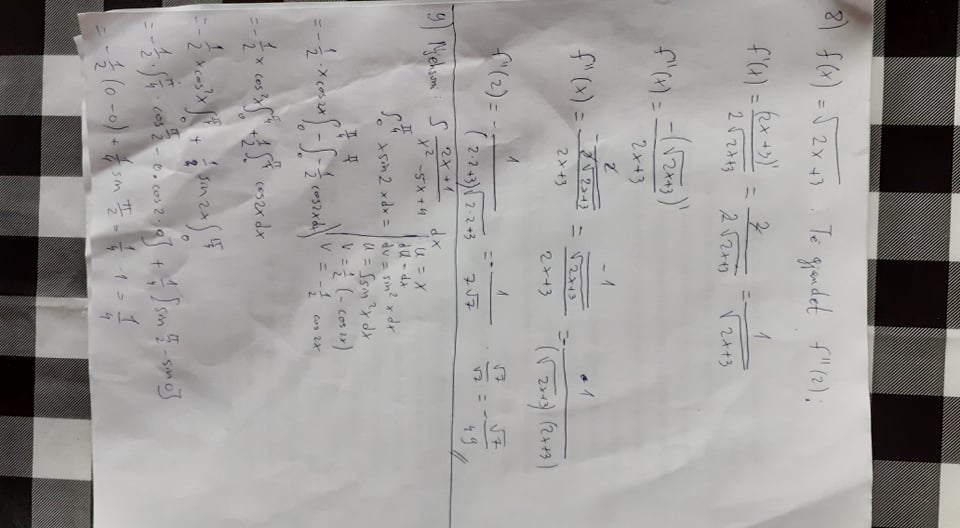 8) f(x) = √2x+3 . Të gjendet f''(2);
f'(x) = (2x+3)' / 2√2x+3 = 2 / 2√2x+3 = 1 / √2x+3
f''(x) = -(√2x+3)' / 2x+3
f''(x) = - 2 / 2√2x+3 / 2x+3 = -1 / √2x+3 / 2x+3 = - 1 / (√2x+3) (2x+3)
f''(2) = - 1 / (2·2+3)√2·2+3 = - 1 / 7√7 · √7 / √7 = - √7 / 49 //
9) Njehsoni: ∫ 2x+1 / x² -5x+4 dx
∫₀^π/4 x sin2x dx =
u = x
du = dx
dv = sin² x dx
u = ∫sin²x dx
v = 1/2 (-cos2x)
v = -1/2 cos2x
= -1/2 · x cos2x ∫₀^π/4 - ∫₀^π/4 -1/2 cos2x dx
= -1/2 x cos²x ∫₀^π/4 + 1/2 ∫₀^π/4 cos2x dx
= -1/2 x cos²x ∫₀^π/4 + 1/2 sin2x ∫₀^π/4
= -1/2 · [π/4 · cos π/2 - 0 · cos2·0] + 1/4 [sin π/2 - sin0]
= -1/2 (0-0) + 1/4 sin π/2 = 1/4 · 1 = 1/4